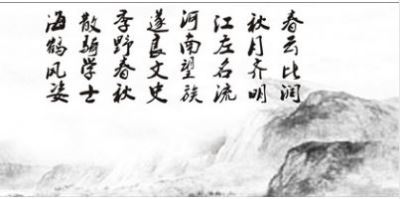 春云比润
秋月齐明
江左名流
河南望族
遂良文史
季野春秋
散骑学士
海鹤风姿